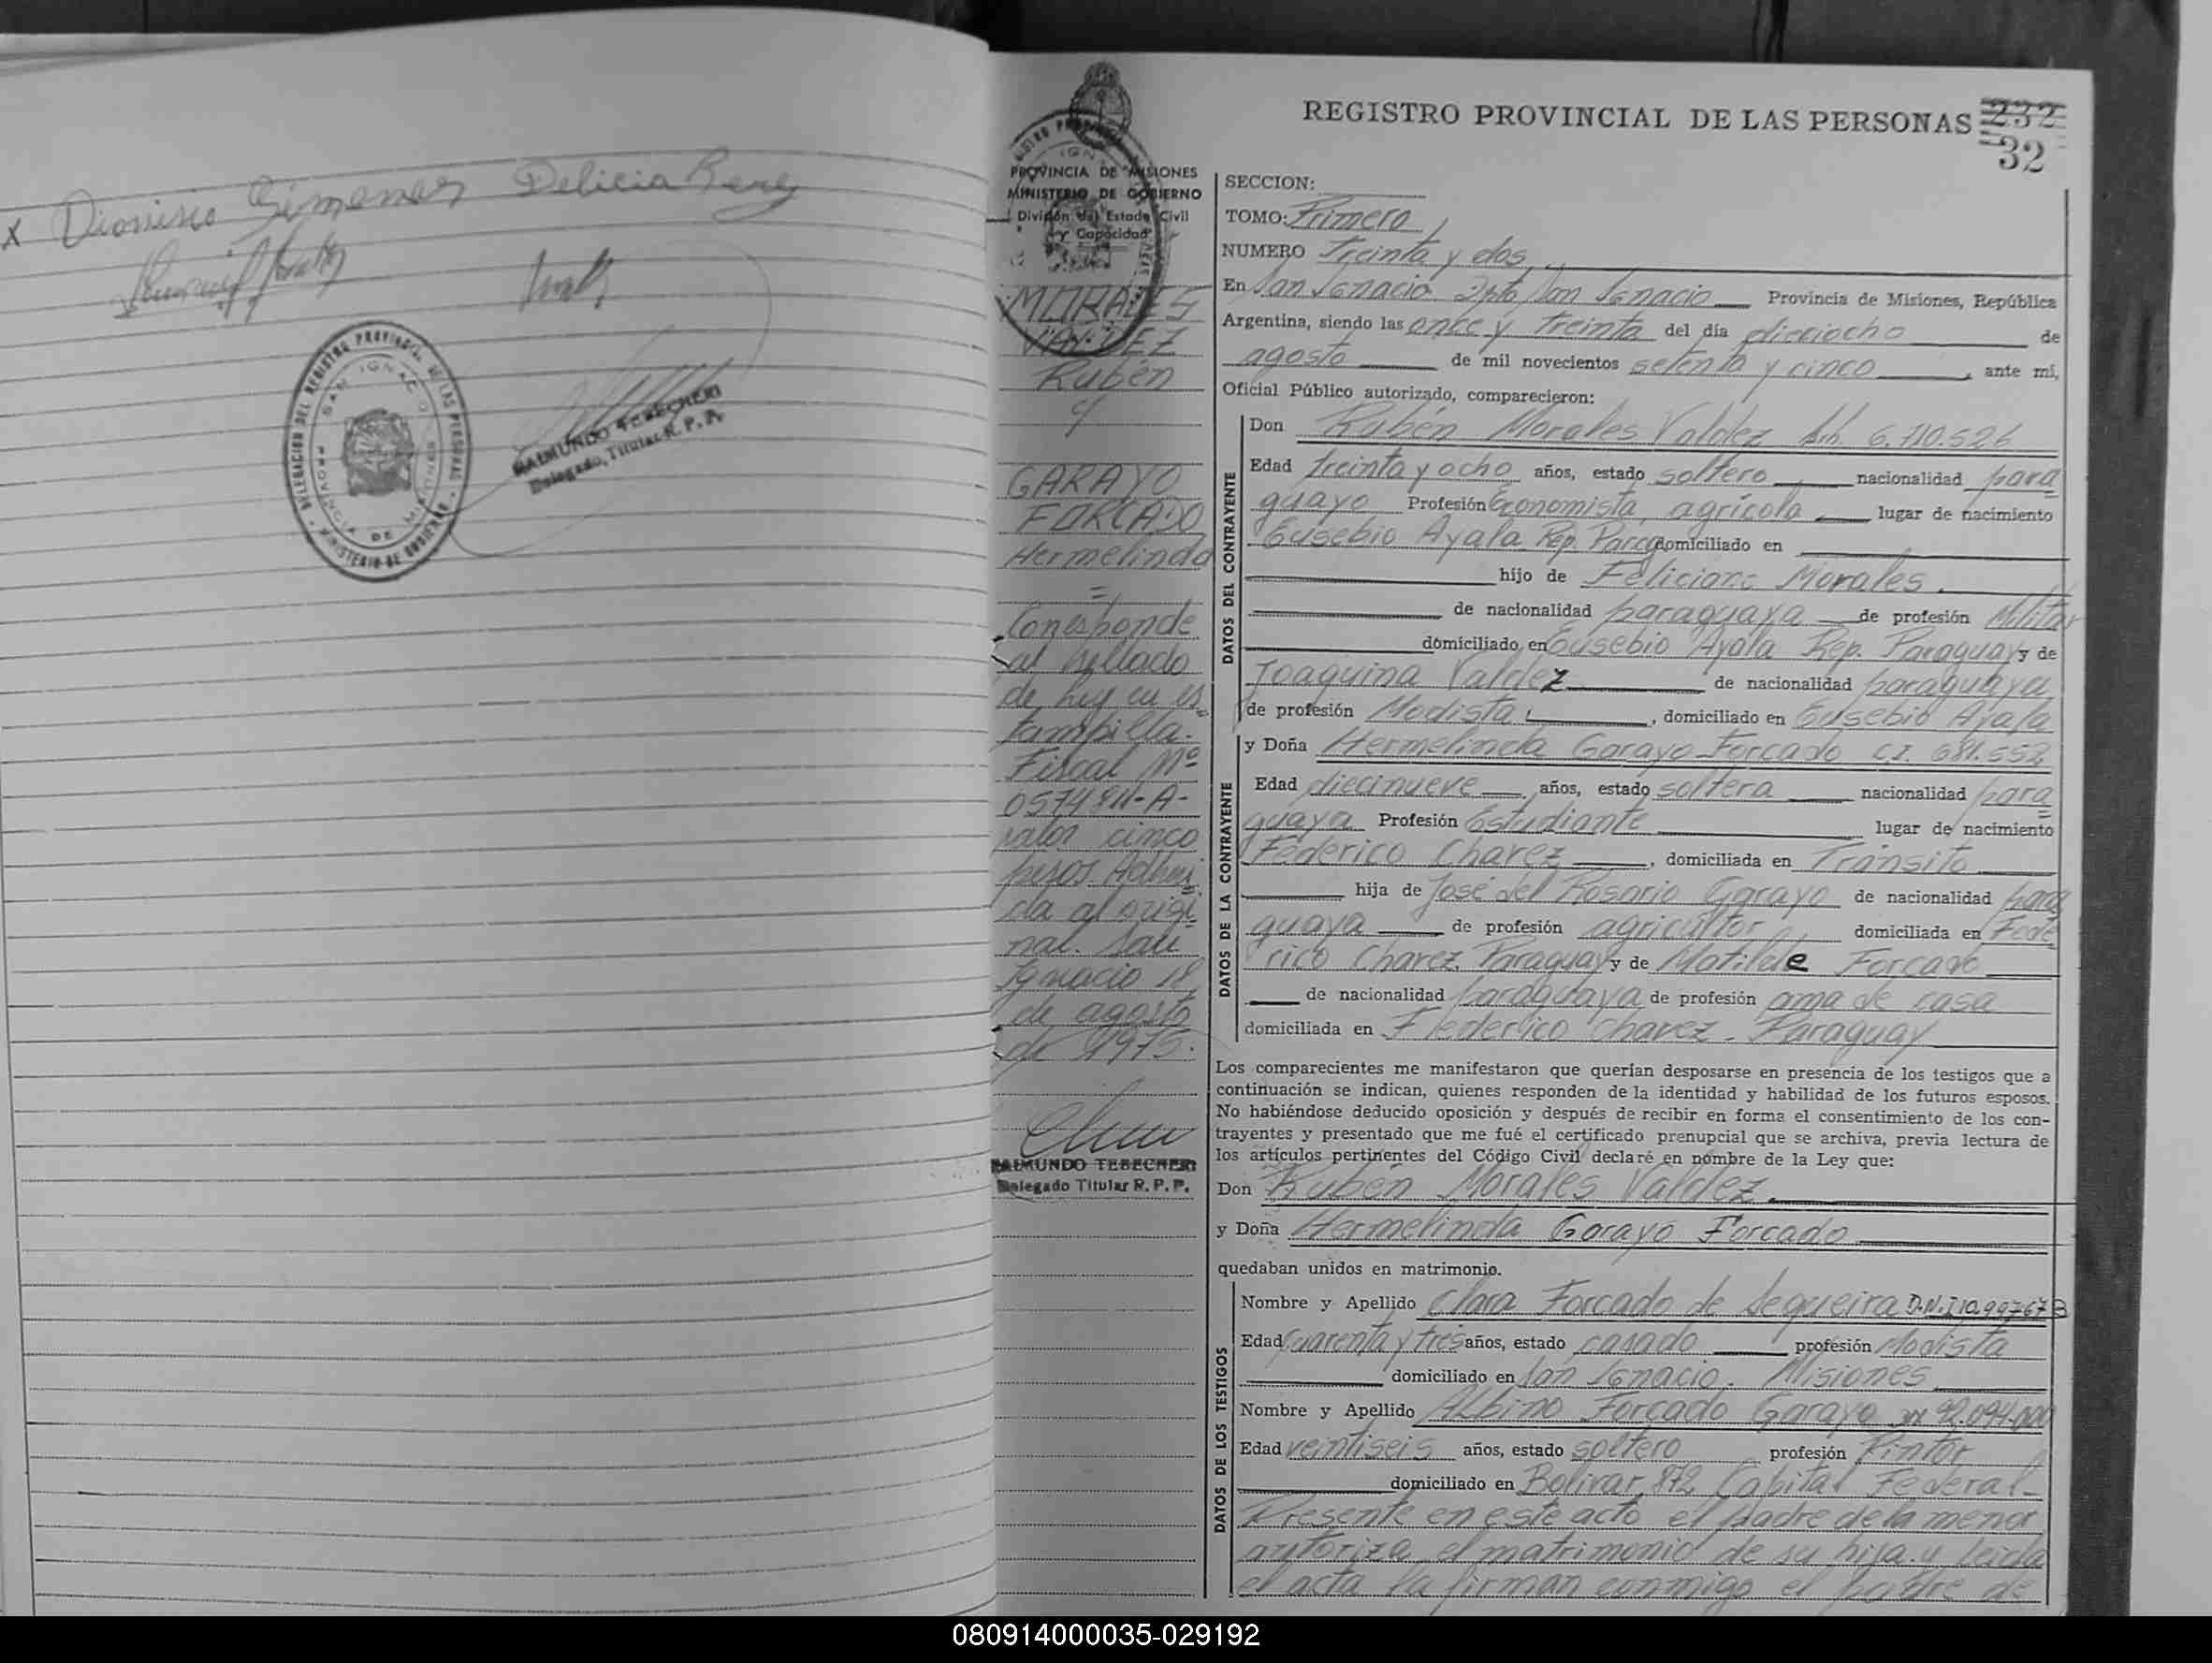 x Dionisio Gimenez Delicia
DELEGACION DEL REGISTRO PROVINCIAL DE LAS PERSONAS
SAN IGNACIO
PROVINCIA DE MISIONES
MINISTERIO DE GOBIERNO
RAIMUNDO TEBECHERI
Delegado Titular R. P. P.
PROVINCIA DE MISIONES
MINISTERIO DE GOBIERNO
División del Estado Civil
y Capacidad
MORALES
VALDEZ
Rubén
y
GARAYO
FORCADO
Hermelinda
=
Corresponde
al sellado
de ley en es
tampilla
Fiscal Nº
0574811-A-
valor cinco
pesos. Adheri
da al origi
nal. San
Ignacio 18
de agosto
de 1975.
RAIMUNDO TEBECHERI
Delegado Titular R. P. P.
REGISTRO PROVINCIAL DE LAS PERSONAS 232
32
SECCION:
TOMO: Primero
NUMERO Treinta y dos
En San Ignacio Dpto San Ignacio Provincia de Misiones, República
Argentina, siendo las once y treinta del día dieciocho de
agosto de mil novecientos setenta y cinco, ante mí,
Oficial Público autorizado, comparecieron:
DATOS DEL CONTRAYENTE
Don Rubén Morales Valdez 6.710.526
Edad treinta y ocho años, estado soltero nacionalidad para
guayo Profesión Economista agrícola lugar de nacimiento
Eusebio Ayala Rep. Parag domiciliado en
hijo de Feliciano Morales.
de nacionalidad paraguaya de profesión Militar
domiciliado en Eusebio Ayala Rep. Paraguay y de
Joaquina Valdez de nacionalidad paraguaya
de profesión Modista, domiciliado en Eusebio Ayala
DATOS DE LA CONTRAYENTE
y Doña Hermelinda Garayo Forcado C.I. 681.552
Edad diecinueve años, estado soltera nacionalidad para
guaya Profesión Estudiante lugar de nacimiento
Federico Chavez, domiciliada en Tránsito
hija de José del Rosario Garayo de nacionalidad para
guaya de profesión agricultor domiciliada en Fede
rico Chavez. Paraguay y de Matilde Forcado
de nacionalidad paraguaya de profesión ama de casa
domiciliada en Federico Chavez. Paraguay
Los comparecientes me manifestaron que querían desposarse en presencia de los testigos que a
continuación se indican, quienes responden de la identidad y habilidad de los futuros esposos.
No habiéndose deducido oposición y después de recibir en forma el consentimiento de los con-
trayentes y presentado que me fué el certificado prenupcial que se archiva, previa lectura de
los artículos pertinentes del Código Civil declaré en nombre de la Ley que:
Don Rubén Morales Valdez.
y Doña Hermelinda Garayo Forcado
quedaban unidos en matrimonio.
DATOS DE LOS TESTIGOS
Nombre y Apellido Clara Forcado de Sequeira D.N.I 10.997673
Edad Cuarenta y tres años, estado casado profesión Modista
domiciliado en San Ignacio. Misiones
Nombre y Apellido Albino Forcado Garayo 92.094.000
Edad veintiseis años, estado soltero profesión Pintor
domiciliado en Bolivar 872 Capital Federal-
Presente en este acto el padre de la menor
autoriza el matrimonio de su hija y leida
el acta la firman conmigo el padre de
080914000035-029192